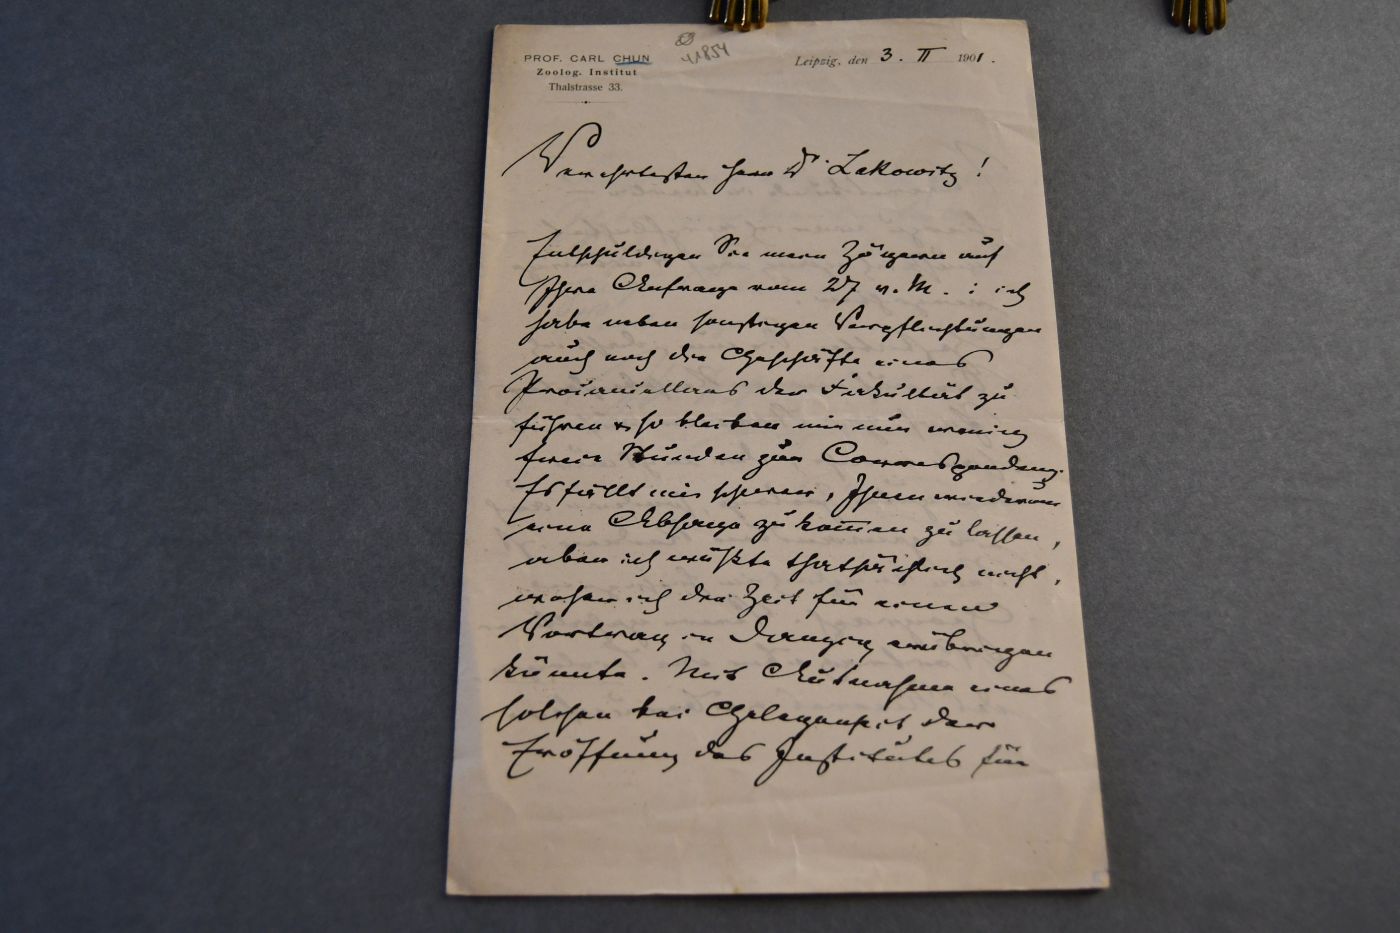 41854
PROF. CARL CHUN
Zoolog. Institut
Thalstrasse 33.
Leipzig, den 3. II 1901.
Verehrtester Herr Dr Lakowitz!
Entschuldigen Sie mein Zögern auf
Ihre Anfrage vom 27 v. M.: ich
habe neben sonstigen Verpflichtungen
auch noch die Geschäfte eines
Procancellars der Fakultät zu
führen & so bleiben mir nur wenig
freie Stunden zur Correspondenz.
Es fällt mir schwer, Ihnen wiederum
eine Absage zukommen zu lassen,
aber ich wüßte thatsächlich nicht,
woher ich die Zeit für einen
Vortrag in Danzig erübrigen
könnte. Mit Ausnahme eines
solchen bei Gelegenheit der
Eröffnung des Institutes für